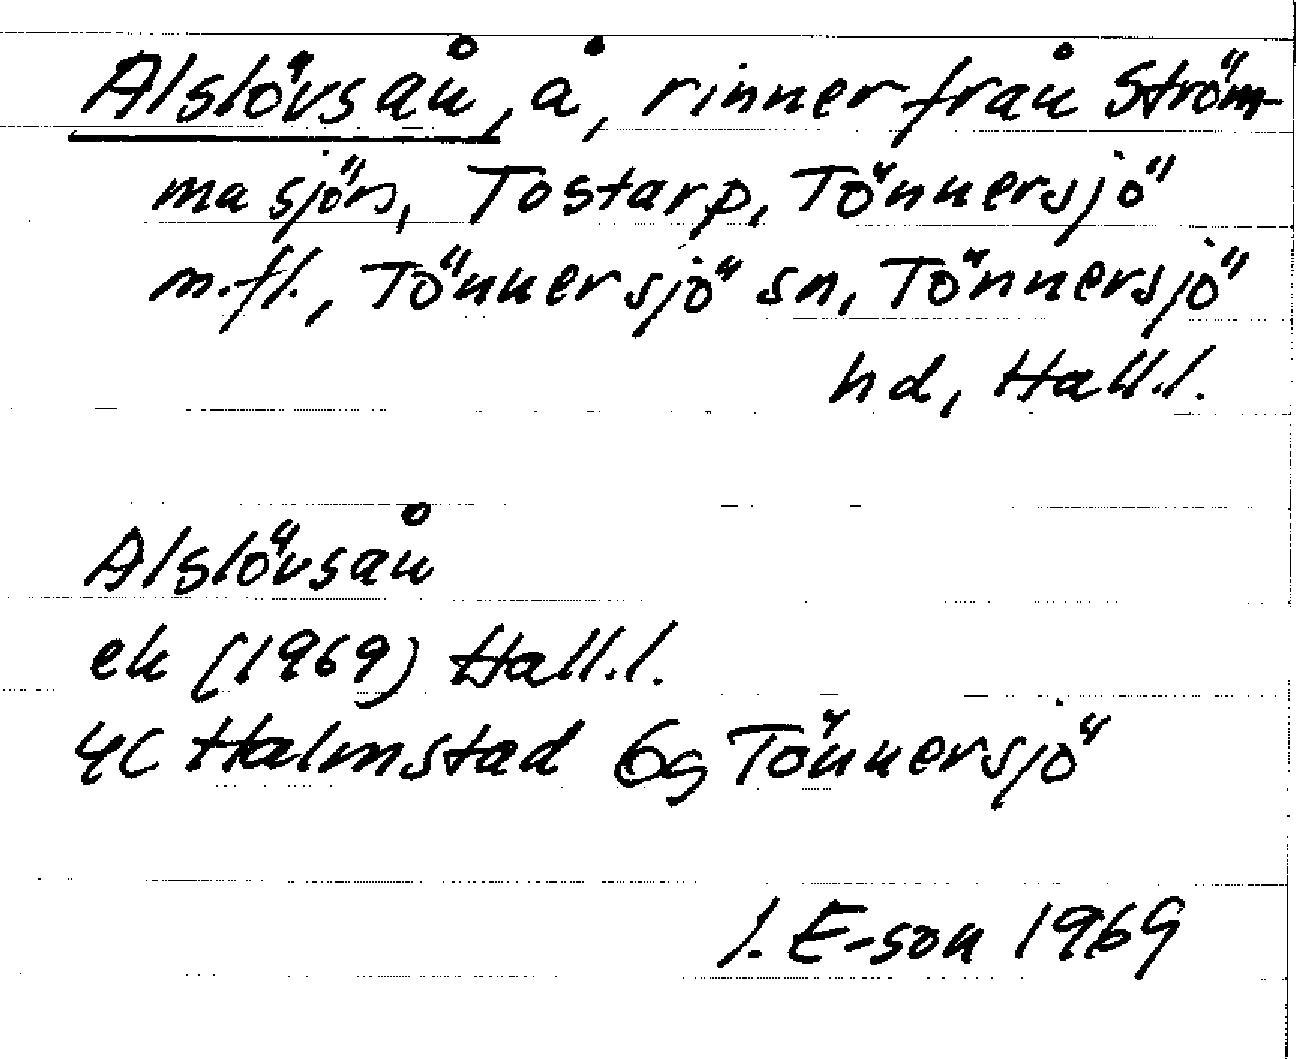 Alslövsån, å, rinner från Ström-
masjön, Tostarp, Tönnersjö
m.fl., Tönnersjö sn, Tönnersjö
hd, Hall.l.
Alslövsån
ek (1969) Hall.l.
4C Halmstad 6g Tönnersjö
I. E-son 1969